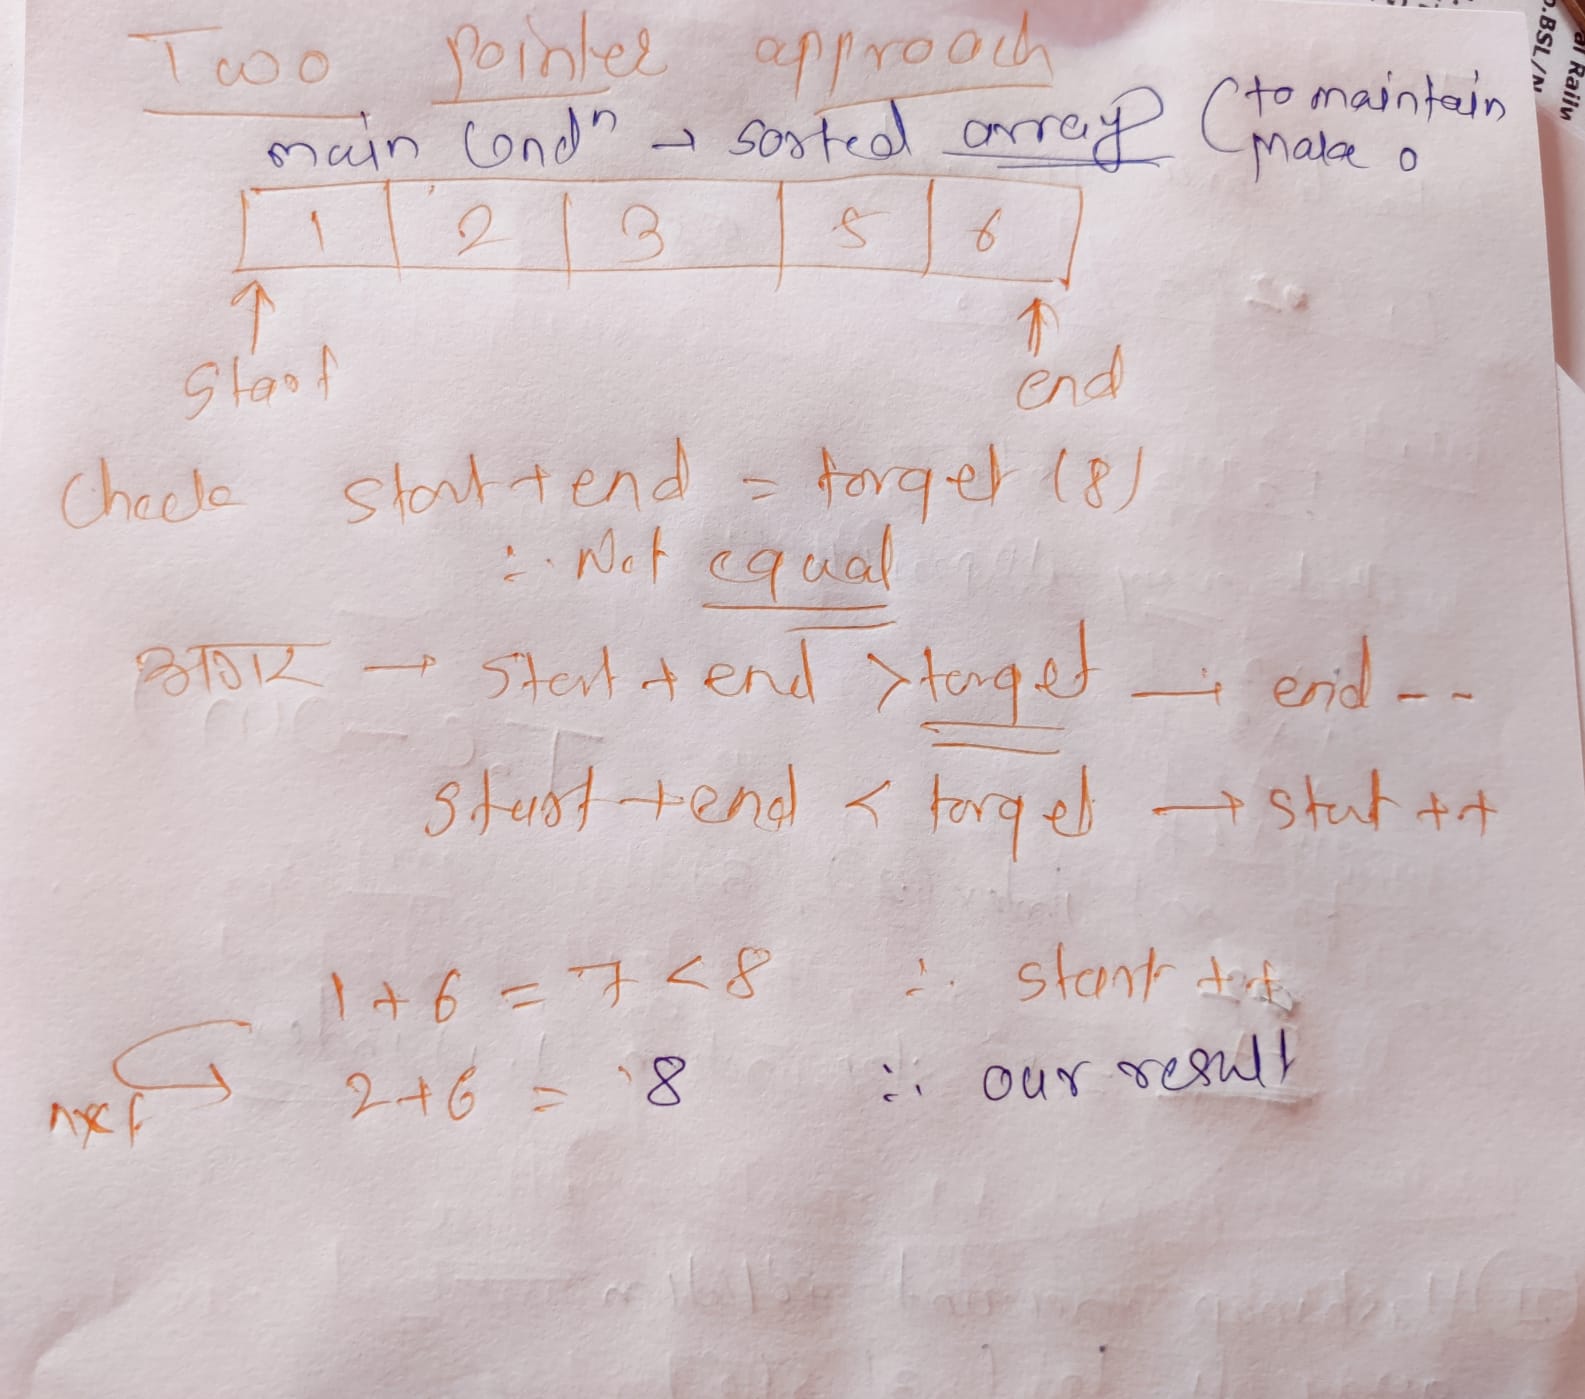 Two pointer approach
main Condⁿ → sorted array (to maintain
make o
1 2 3 5 6
↑ ↑
Start end
Check start + end = target (8)
∴ Not equal
अगर → start + end > target → end --
start + end < target → start ++
1 + 6 = 7 < 8 ∴ start ++
nxt 2 + 6 = 8 ∴ our result